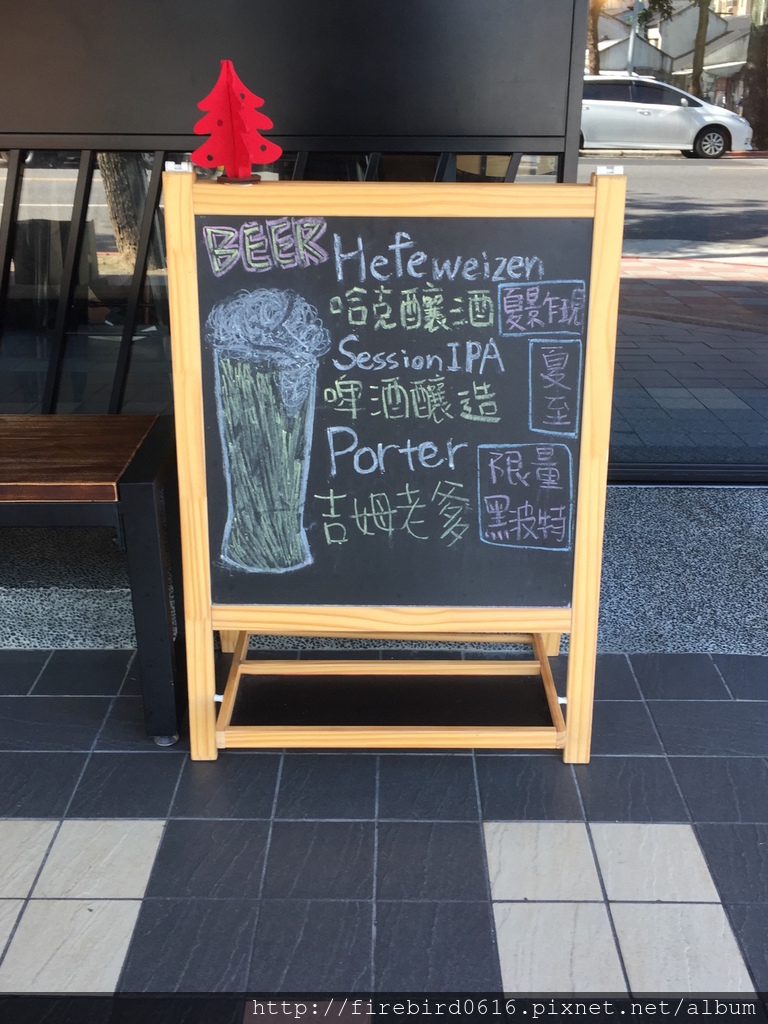 BEER
Hefeweizen
哈克釀酒
曇乍現
Session IPA
啤酒釀造
夏至
Porter
吉姆老爹
限量
黑波特
http://firebird0616.pixnet.net/album